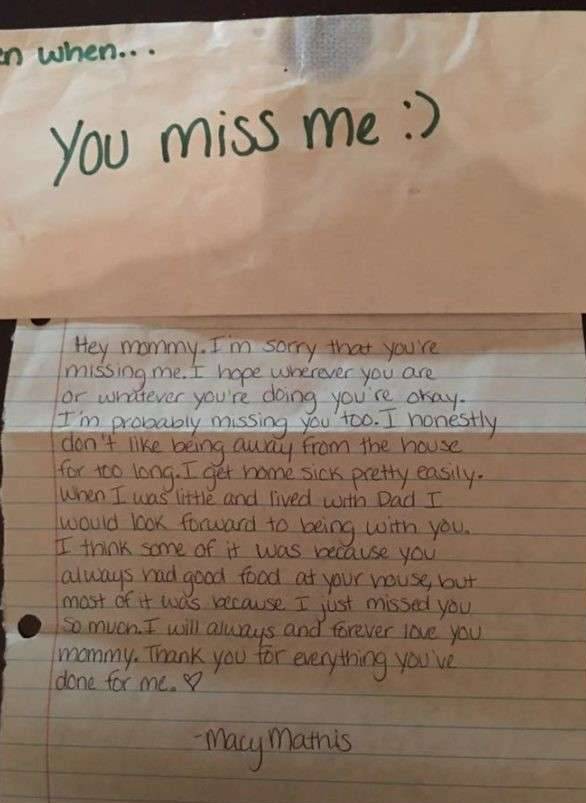 en when...
You miss me :)
Hey mommy. I'm sorry that you're
missing me. I hope wherever you are
or whatever you're doing you're okay.
I'm probably missing you too. I honestly
don't like being away from the house
for too long. I get home sick pretty easily.
When I was little and lived with Dad I
would look forward to being with you.
I think some of it was because you
always had good food at your house, but
most of it was because I just missed you
so much. I will always and forever love you
mommy. Thank you for everything you've
done for me. ♡
-Macy Mathis